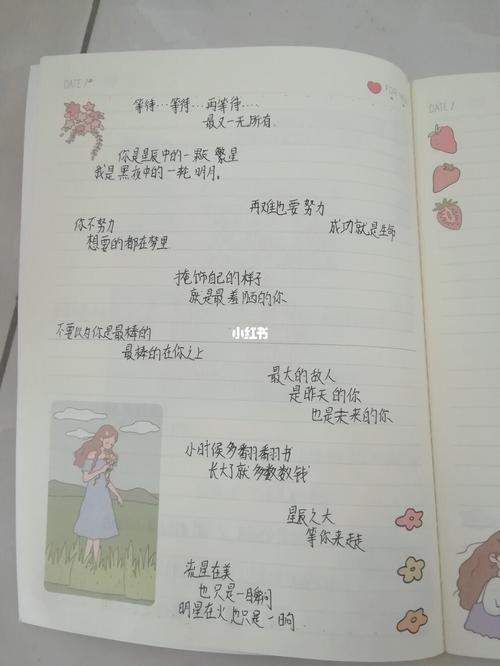 DATE /
FOR
等待…等待…再等待….
最又一无所有.
你是星辰中的一颗 繁星
我是 黑夜中的一轮 明月。
再难也要 努力
成功就是生命
你不努力
想要的都在梦里
掩饰自己的样子
就是最羞陋的你
小红书
不要以为你是最棒的
最棒的在你之上
最大的敌人
是昨天的你
也是未来的你
小时候多翻翻书
长大了就 多数数钱
星辰之大
等你来走
流星在美
也只是一瞬间
明星在火 也只是一
DATE /